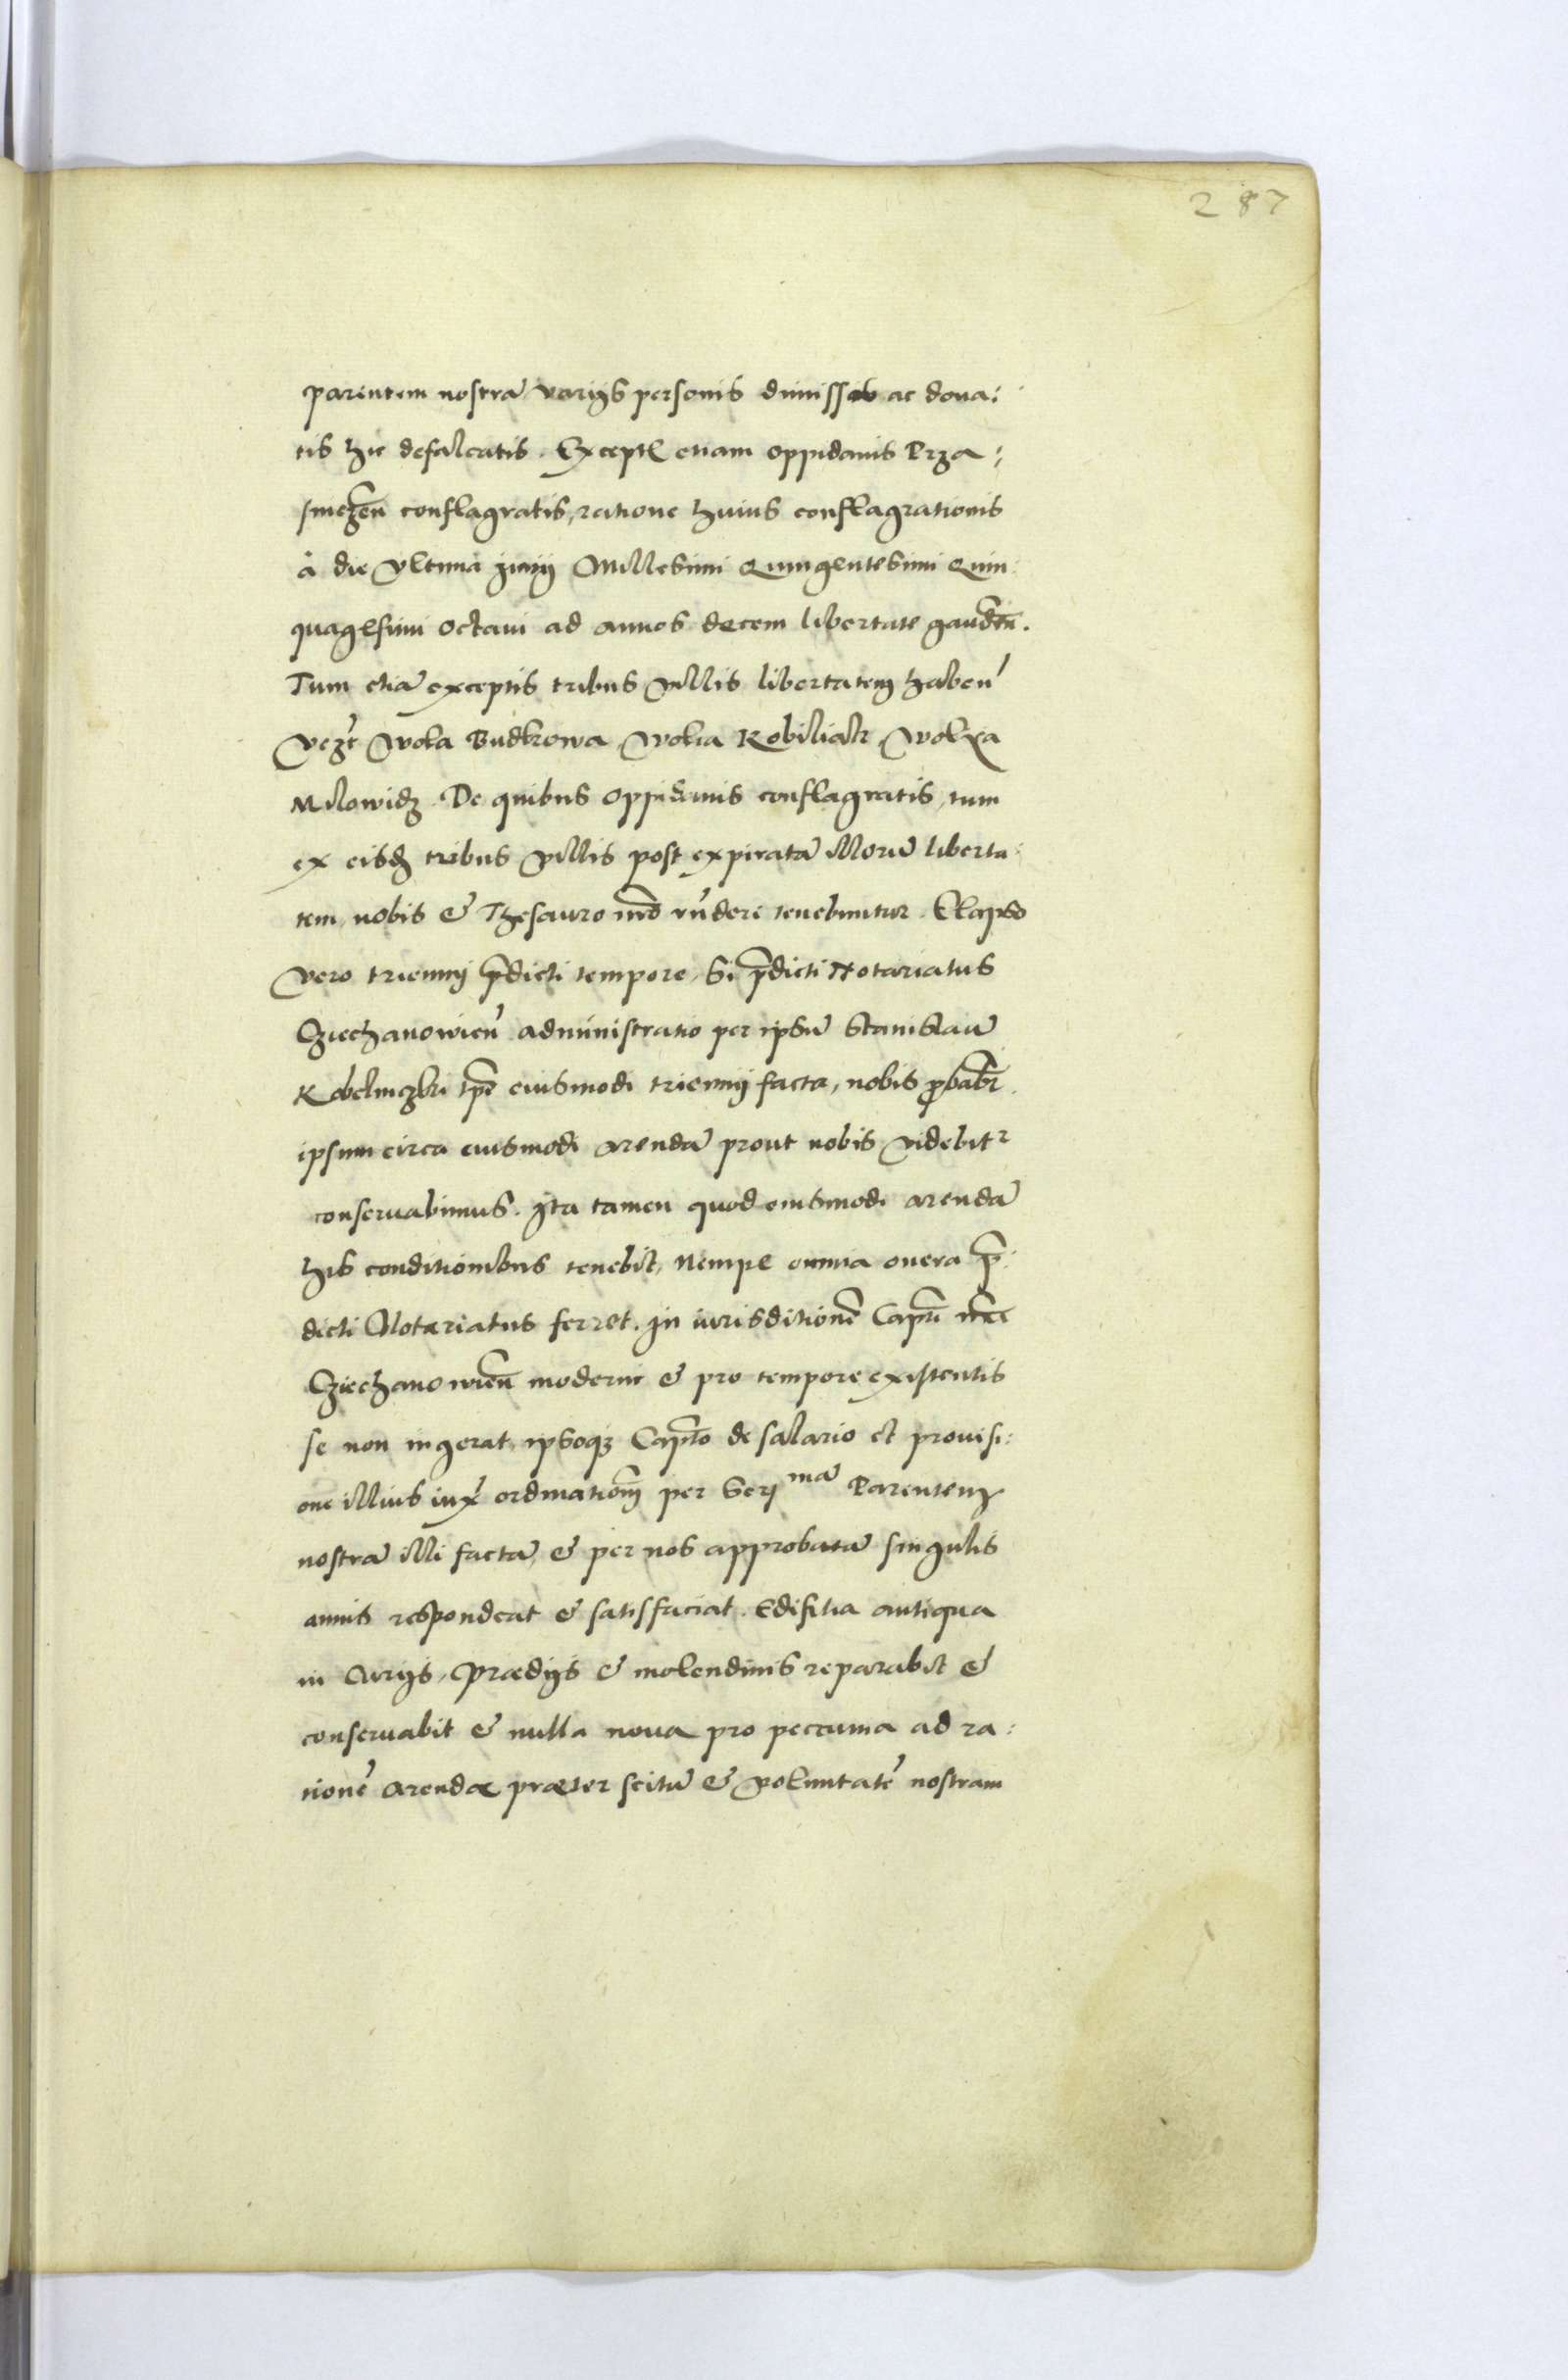 287
parentem nostrā varijs personis dimissis ac dona:
tis hic defalcatis. Except~ etiam oppidanis Prza:
smezen̄ conflagratis, ratione huius conflagrationis
à die vltima junij Millesimi Quingentesimi Quin
quagesimi octaui ad annos decem libertate gauden̄.
Tum etiā exceptis tribus villis libertatem haben̄
vezt̄ Wola Budkowa, Wolia Kobiliak, Wolya
Milowidz. De quibus oppidanis conflagratis, tum
ex eisdz tribus villis post expiratā illorū liberta:
tem, nobis & Thesauro nr̄o rn̄dere tenebuntur. Elapso
vero triennij p̄dicti tempore, Si p̄dicti Notariatus
Cziechanowien̄ administratio per ipsū Stanislaū
Kobelniczki tp̄e eiusmodi triennij facta, nobis probabr̄.
ipsum circa eiusmodi arendā prout nobis videbitr
conseruabimus. Ita tamen quod eiusmodi arendā
his conditionibus tenebit, Nempe omnia onera p̄:
dicti Notariatus ferret. In iurisditionē Cap̄ti nr̄i
Cziechanowien̄ moderni & pro tempore existentis
se non ingerat, ipsoqz Cap̄to de salario et prouisi:
one illius iux̄ ordinationē per Serimā Parentem
nostrā illi factā, & per nos approbatā singulis
annis respondeat & satisfaciat. Edifitia antiqua
in Curijs, Prædijs & molendinis reparabit &
conseruabit & nulla noua pro peccunia ad ra:
tionē arendæ præter scitū & voluntatē nostram